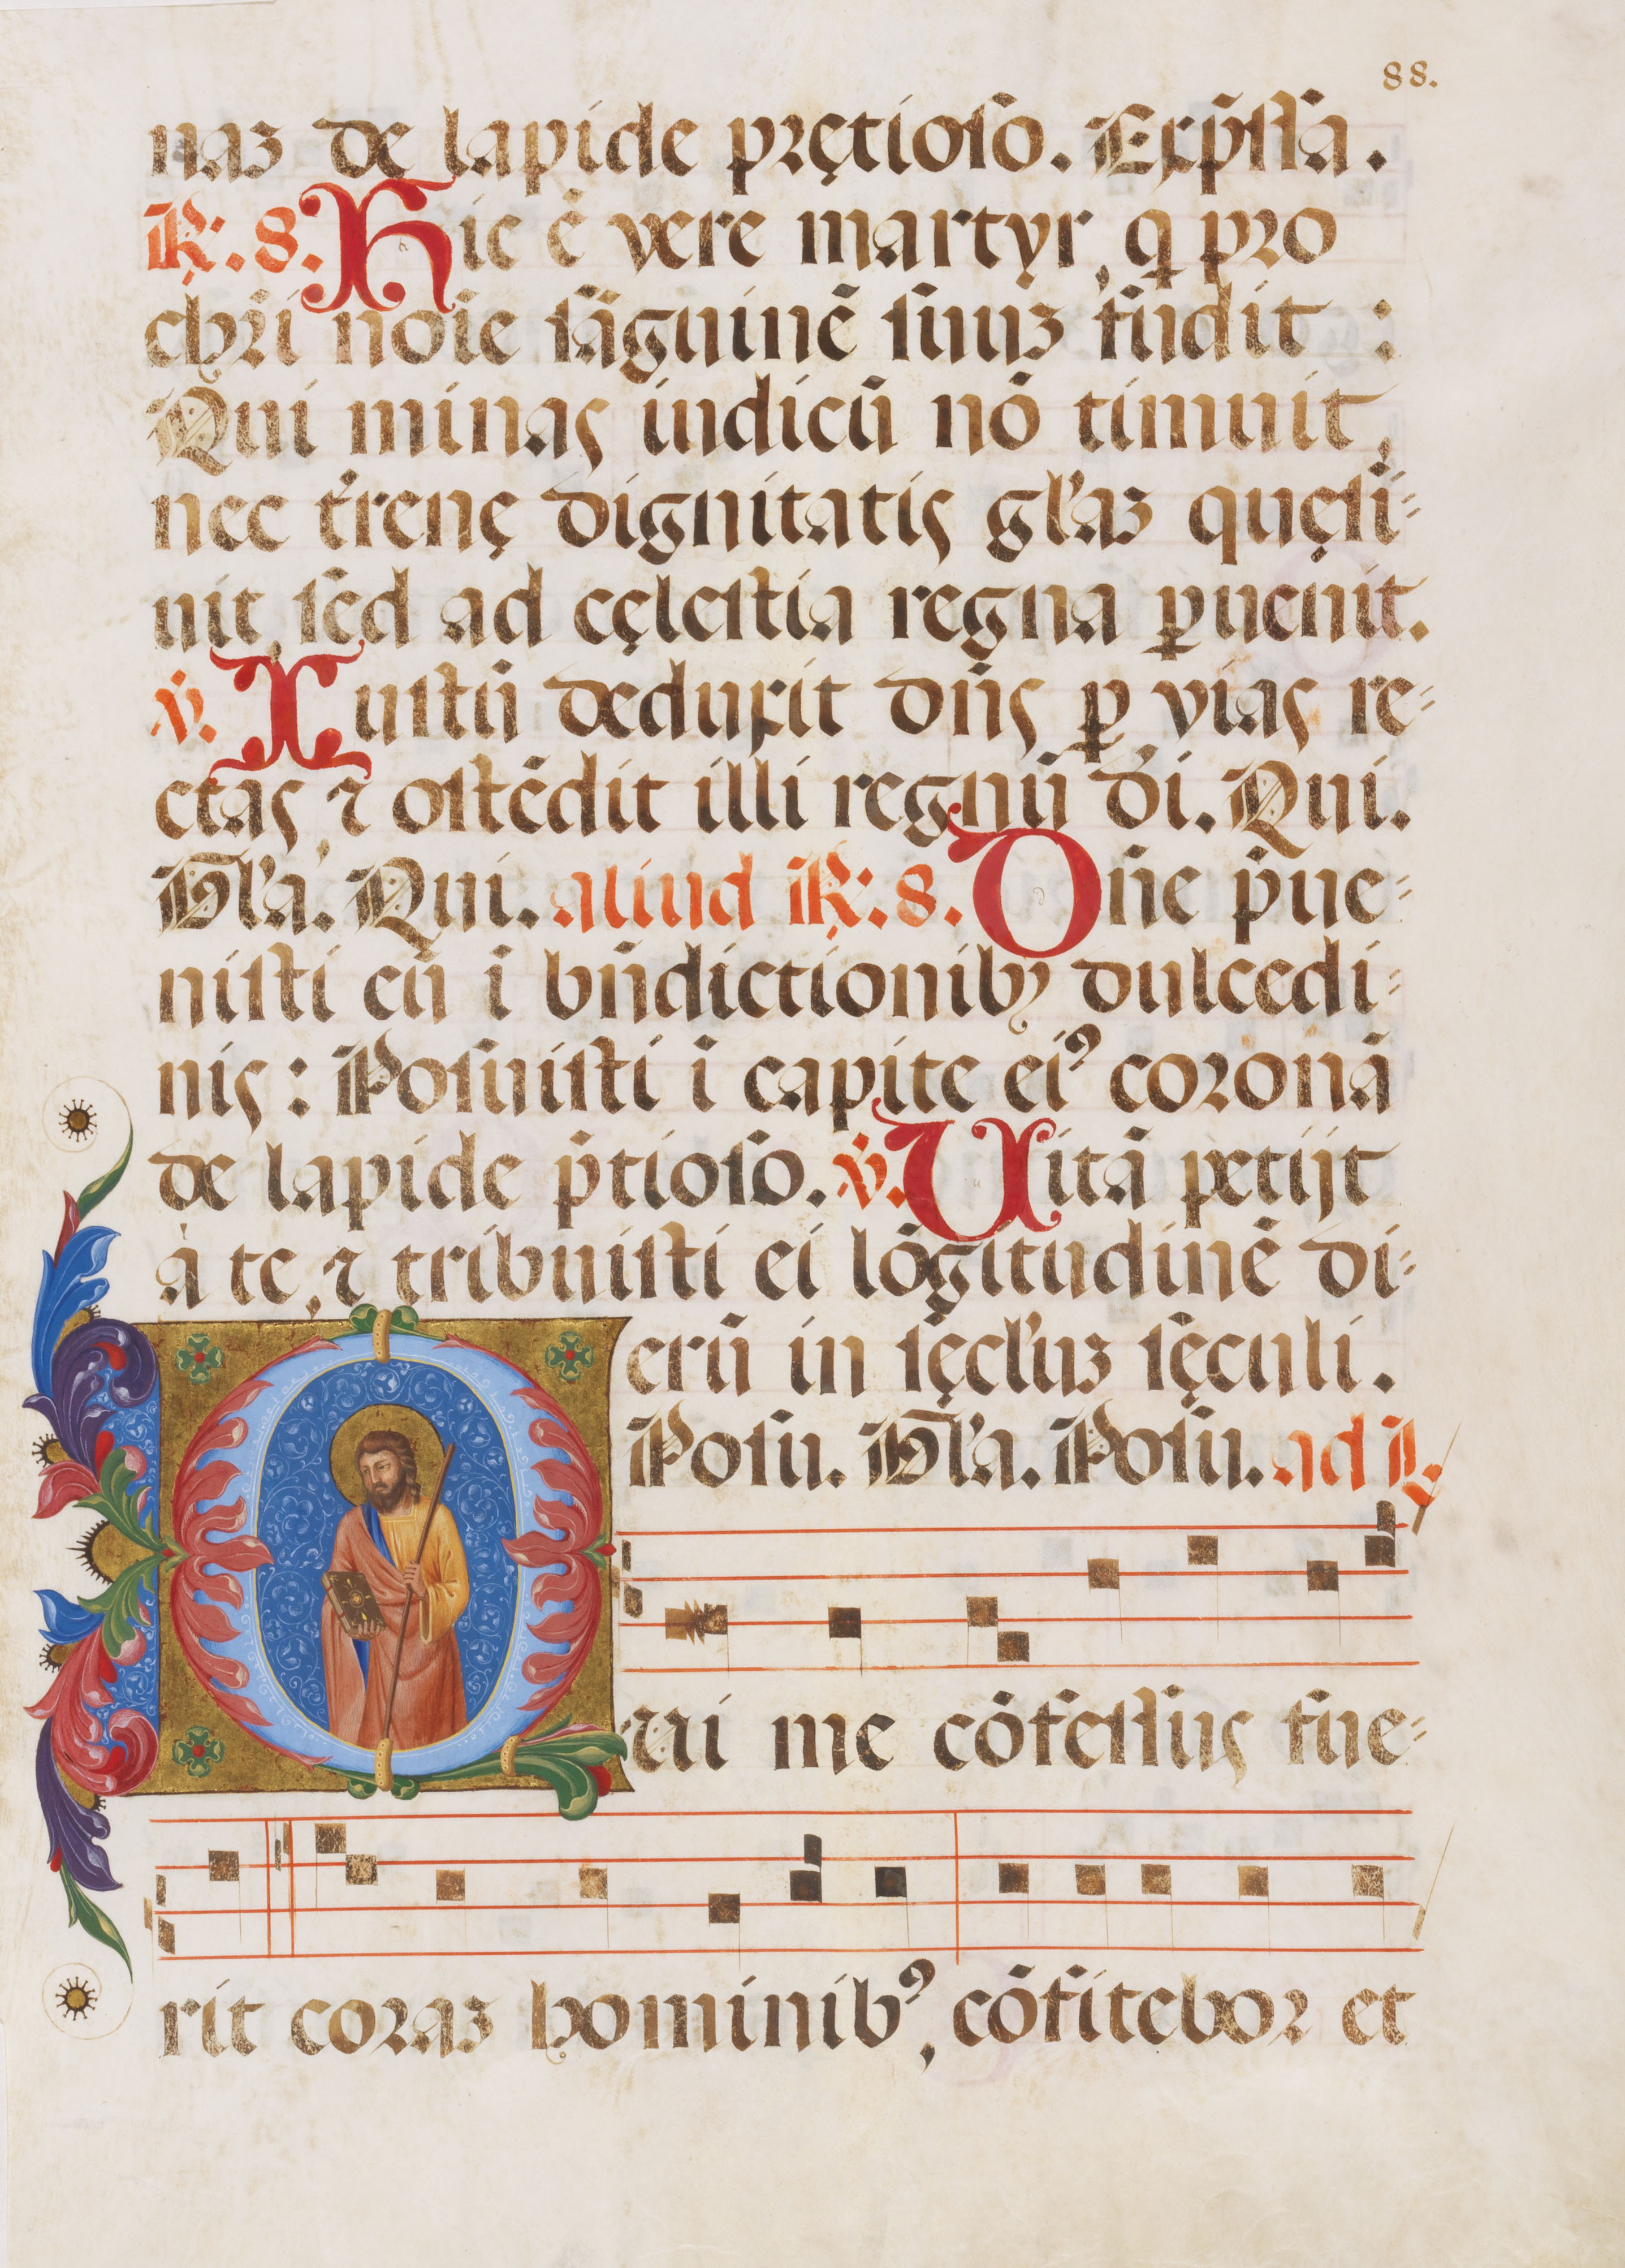 88.
naꝫ de lapide prętioſo. Exp̄ſſa.
℟. 8. Hic ē vere martyr, q̣ pro
chr̄i noīe ſāguinē ſuuꝫ fudit :
Qui minas iudicū nō timuit,
nec t̄renę dignitatis gl'aꝫ quęſi-
uit, ſed ad cęleſtia regna ꝑuenit.
℣. Iuſtū deduxit dn̄s ꝑ vias re-
ctas, ⁊ oſtēdit illi regnū d̄i. Qui.
Gl'a. Qui. aliud ℟. 8. Dn̄e p̄ue-
niſti eū ī bn̄dictionibꝫ dulcedi-
nis : Poſuiſti ī capite eiꝰ coronā
de lapide p̄tioſo. ℣. Uitā petijt
à te, ⁊ tribuiſti ei lōgitudinē di-
erū in ſęcl'uꝫ ſęculi.
Poſu. Gl'a. Poſu. ad L.
Qui me cōfeſſus fue-
rit coraꝫ hominibꝰ, cōfitebor et